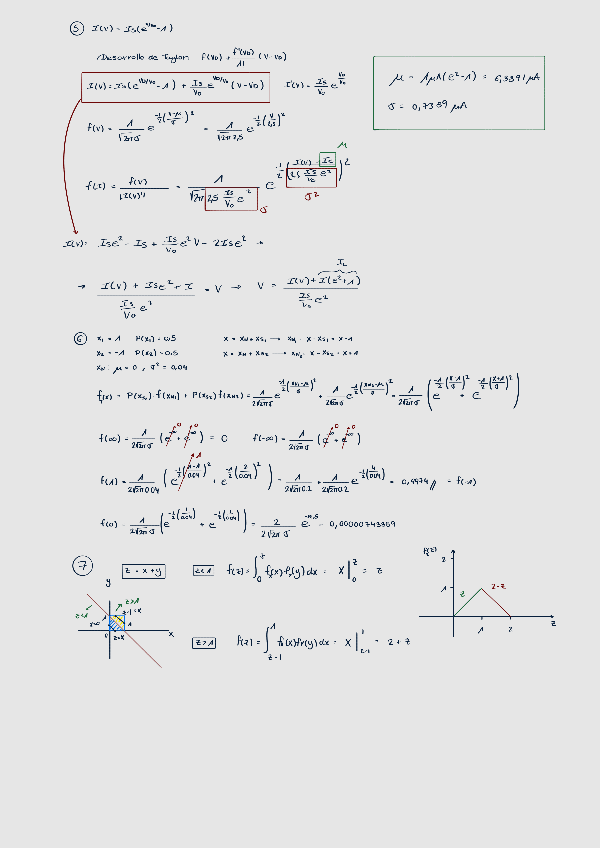 ⑤ I(V) = Is(e^(V/V0) - 1)
Desarrollo de Taylor: f(V0) + f'(V0)/1! (V - V0)
I(V) = Is(e^(V0/V0) - 1) + Is/V0 e^(V0/V0) (V - V0)    I'(V) = Is/V0 e^(V0/V0)
μ = 1μA(e² - 1) = 6,3391 μA
σ = 0,7339 μA
f(V) = 1/(√2π σ) e^(-1/2 ((V-μ)/σ)²) = 1/(√2π 2,5) e^(-1/2 (V/2,5)²)
f(I) = f(V)/|I(V)'| = 1/(√2π 2,5 Is/V0 e²) e^(-1/2 ((I(V) - Ic)/(2,5 Is/V0 e²))²)
μ
σ
σ²
I(V) = Is e² - Is + Is/V0 e² V - 2Is e² →
→ (I(V) + Is e² + I)/(Is/V0 e²) = V → V = (I(V) + I(e² + 1))/(Is/V0 e²)
⑥ x₁ = 1 P(x₁) = 0,5 x = xN + xS1 → xN1 = x - xS1 = x - 1
x₂ = -1 P(x₂) = 0,5 x = xN + xS2 → xN2 = x - xS2 = x + 1
xN: μ = 0, σ² = 0,04
f(x) = P(xS1)·f(xN1) + P(xS2) f(xN2) = 1/(2√2π σ) e^(-1/2 ((xN1-μ)/σ)²) + 1/(2√2π σ) e^(-1/2 ((xN2-μ)/σ)²) = 1/(2√2π σ) (e^(-1/2 ((x-1)/σ)²) + e^(-1/2 ((x+1)/σ)²))
f(∞) = 1/(2√2π σ) (e^∞ + e^∞) = 0    f(-∞) = 1/(2√2π σ) (e^∞ + e^∞)
f(1) = 1/(2√2π 0.04) (e^(-1/2 ((1-1)/0.04)²) + e^(-1/2 (2/0.04)²)) = 1/(2√2π 0.2) + 1/(2√2π 0.2) e^(-1/2 (4/0.04)) = 0,9974 // = f(-1)
f(0) = 1/(2√2π σ) (e^(-1/2 (1/0.04)) + e^(-1/2 (1/0.04))) = 2/(2√2π σ) e^(-12,5) = 0,00000743369
⑦ z = x + y    z<1    f(z) = ∫₀^z fx(x) fy(y) dx = x |₀^z = z
z>1    f(z) = ∫_(z-1)^1 fx(x) fy(y) dx = x |_(z-1)^1 = 2 + z
y
z<1
z>1
x
f(z)
2
1
z
2-z
1 2
z